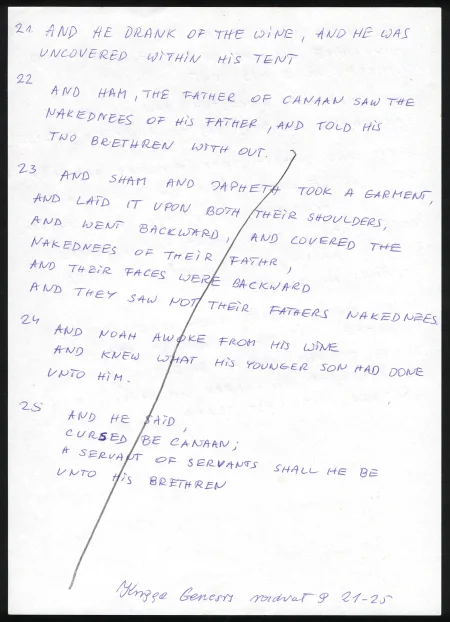 21 AND HE DRANK OF THE WINE, AND HE WAS
UNCOVERED WITHIN HIS TENT
22
AND HAM, THE FATHER OF CANAAN SAW THE
NAKEDNEES OF HIS FATHER, AND TOLD HIS
TWO BRETHREN WITH OUT.
23 AND SHAM AND JAPHETH TOOK A GARMENT,
AND LAID IT UPON BOTH THEIR SHOULDERS,
AND WENT BACKWARD, AND COVERED THE
NAKEDNEES OF THEIR FATHR,
AND THEIR FACES WERE BACKWARD
AND THEY SAW NOT THEIR FATHERS NAKEDNEES
24
AND NOAH AWOKE FROM HIS WINE
AND KNEW WHAT HIS YOUNGER SON HAD DONE
UNTO HIM.
25
AND HE SAID,
CURSED BE CANAAN;
A SERVANT OF SERVANTS SHALL HE BE
UNTO HIS BRETHREN
Genesis 9 21-25